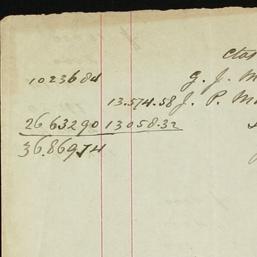 1023684 G. J. M
13.574.58 J. P. M
2663290 13058.32
3686974